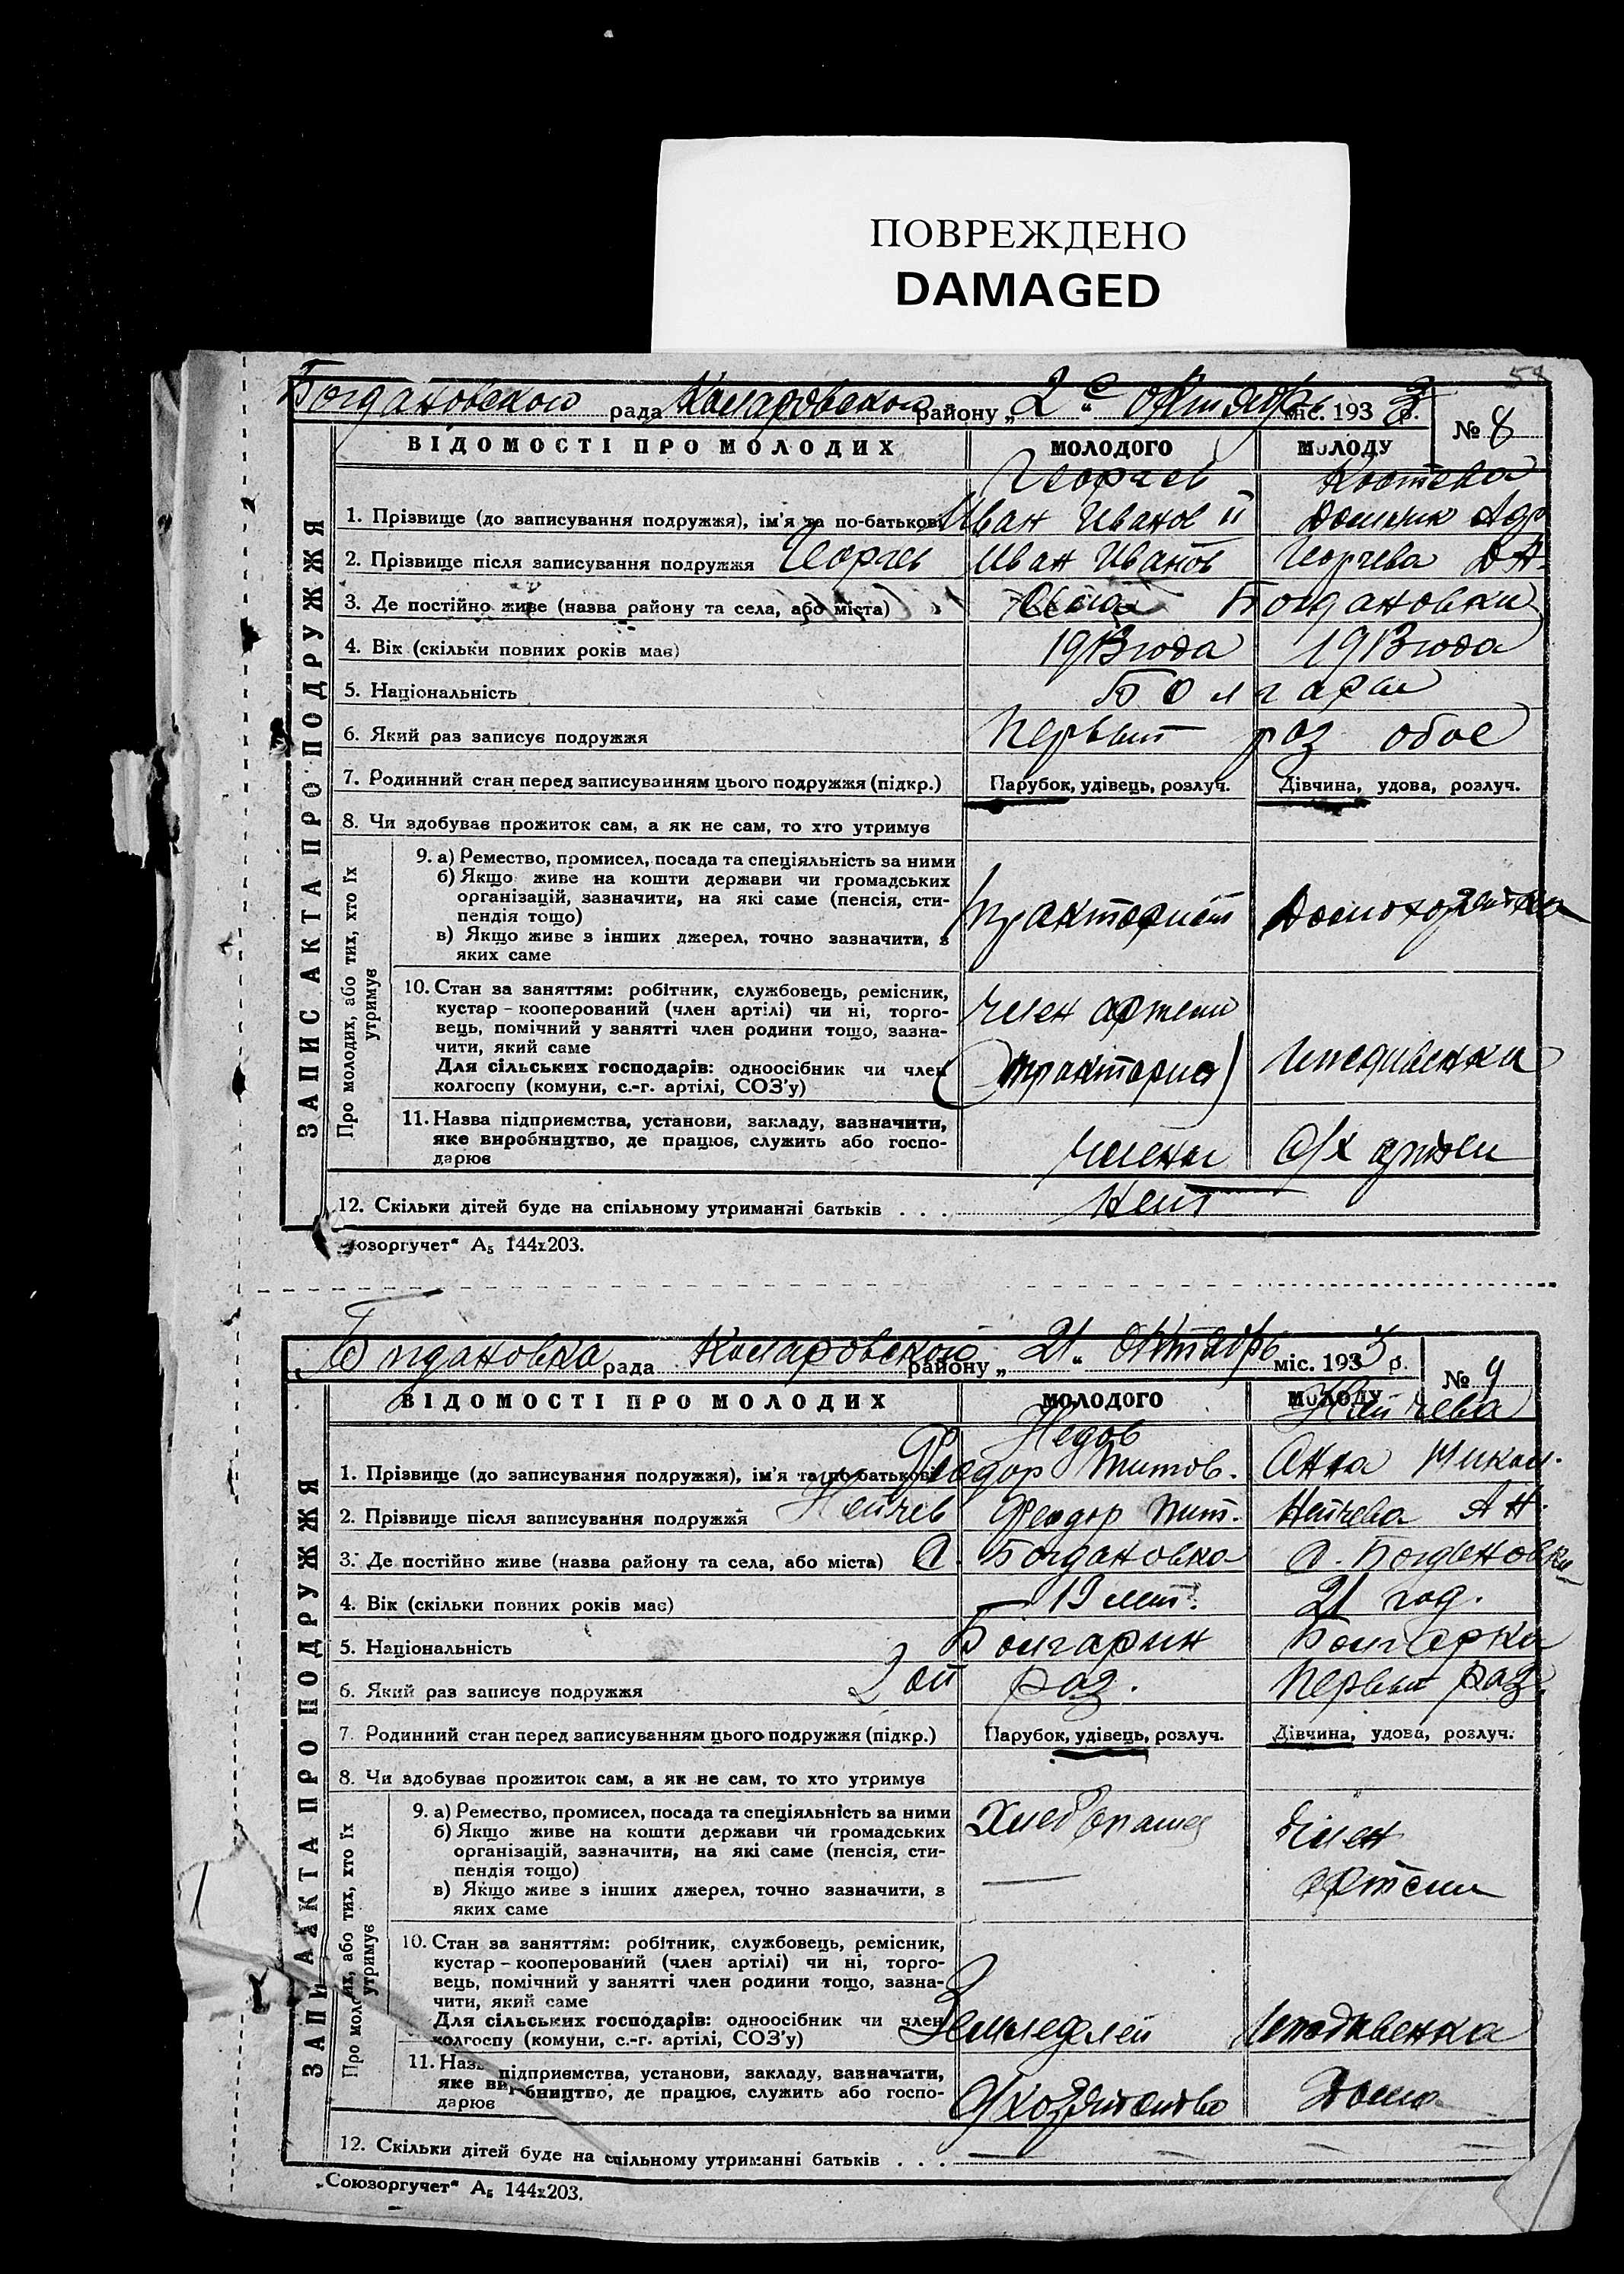 ПОВРЕЖДЕНО
DAMAGED
58
Богдановской рада Комаровской району „2“ Октябрь міс. 1933 р.
№ 8
ВІДОМОСТІ ПРО МОЛОДИХ МОЛОДОГО МОЛОДУ
ЗАПИС АКТА ПРО ПОДРУЖЖЯ
Георгиев Костева
1. Прізвище (до записування подружжя), ім'я та по-батькові Иван Иванов
2. Прізвище після записування подружжя Иван Иванов Георгиева
3. Де постійно живе (назва району та села, або міста) Богдановки
4. Вік (скільки повних років має) 1913 года 1913 года
5. Національність Болгары
6. Який раз записує подружжя Первый раз обое
7. Родинний стан перед записуванням цього подружжя (підкр.) Парубок, удівець, розлуч. Дівчина, удова, розлуч.
8. Чи здобуває прожиток сам, а як не сам, то хто утримує
Про молодих, або тих, хто їх утримує
9. а) Ремество, промисел, посада та спеціяльність за ними
б) Якщо живе на кошти держави чи громадських
організацій, зазначити, на які саме (пенсія, сти-
пендія тощо)
тракторист Домохозяйка
в) Якщо живе з інших джерел, точно зазначити, з
яких саме
10. Стан за заняттям: робітник, службовець, ремісник,
кустар-кооперований (член артілі) чи ні, торго-
член артели
вець, помічний у занятті член родини тощо, зазна-
чити, який саме
Для сільських господарів: одноосібник чи член
колгоспу (комуни, с.-г. артілі, СОЗ'у)
(тракторист) Иждивенка
11. Назва підприємства, установи, закладу, зазначити,
яке виробництво, де працює, служить або госпо-
дарює
члены с/х артели
12. Скільки дітей буде на спільному утриманні батьків . . . нет
„Союзоргучет“ А₅ 144х203.
Богдановка рада Комаровской району „21“ Октябрь міс. 1933 р.
№ 9
ВІДОМОСТІ ПРО МОЛОДИХ МОЛОДОГО МОЛОДУ
ЗАПИС АКТА ПРО ПОДРУЖЖЯ
Недов Нейчева
1. Прізвище (до записування подружжя), ім'я та по-батькові Феодор Титов. Анна Никол.
2. Прізвище після записування подружжя Нейчев Феодор Тит. Нейчева А Н.
3. Де постійно живе (назва району та села, або міста) с. Богдановка с. Богдановки
4. Вік (скільки повних років має) 19 лет. 21 год.
5. Національність Болгарин Болгарка
6. Який раз записує подружжя 2 ой раз. Первый раз.
7. Родинний стан перед записуванням цього подружжя (підкр.) Парубок, удівець, розлуч. Дівчина, удова, розлуч.
8. Чи здобуває прожиток сам, а як не сам, то хто утримує
Про молодих, або тих, хто їх утримує
9. а) Ремество, промисел, посада та спеціяльність за ними
б) Якщо живе на кошти держави чи громадських
організацій, зазначити, на які саме (пенсія, сти-
пендія тощо)
Хлебопашец член
артели
в) Якщо живе з інших джерел, точно зазначити, з
яких саме
10. Стан за заняттям: робітник, службовець, ремісник,
кустар-кооперований (член артілі) чи ні, торго-
вець, помічний у занятті член родини тощо, зазна-
чити, який саме
Для сільських господарів: одноосібник чи член
колгоспу (комуни, с.-г. артілі, СОЗ'у)
Земледелец Иждивенка
11. Назва підприємства, установи, закладу, зазначити,
яке виробництво, де працює, служить або госпо-
дарює
с/хозяйство Дома
12. Скільки дітей буде на спільному утриманні батьків . . . —
„Союзоргучет“ А₅ 144х203.